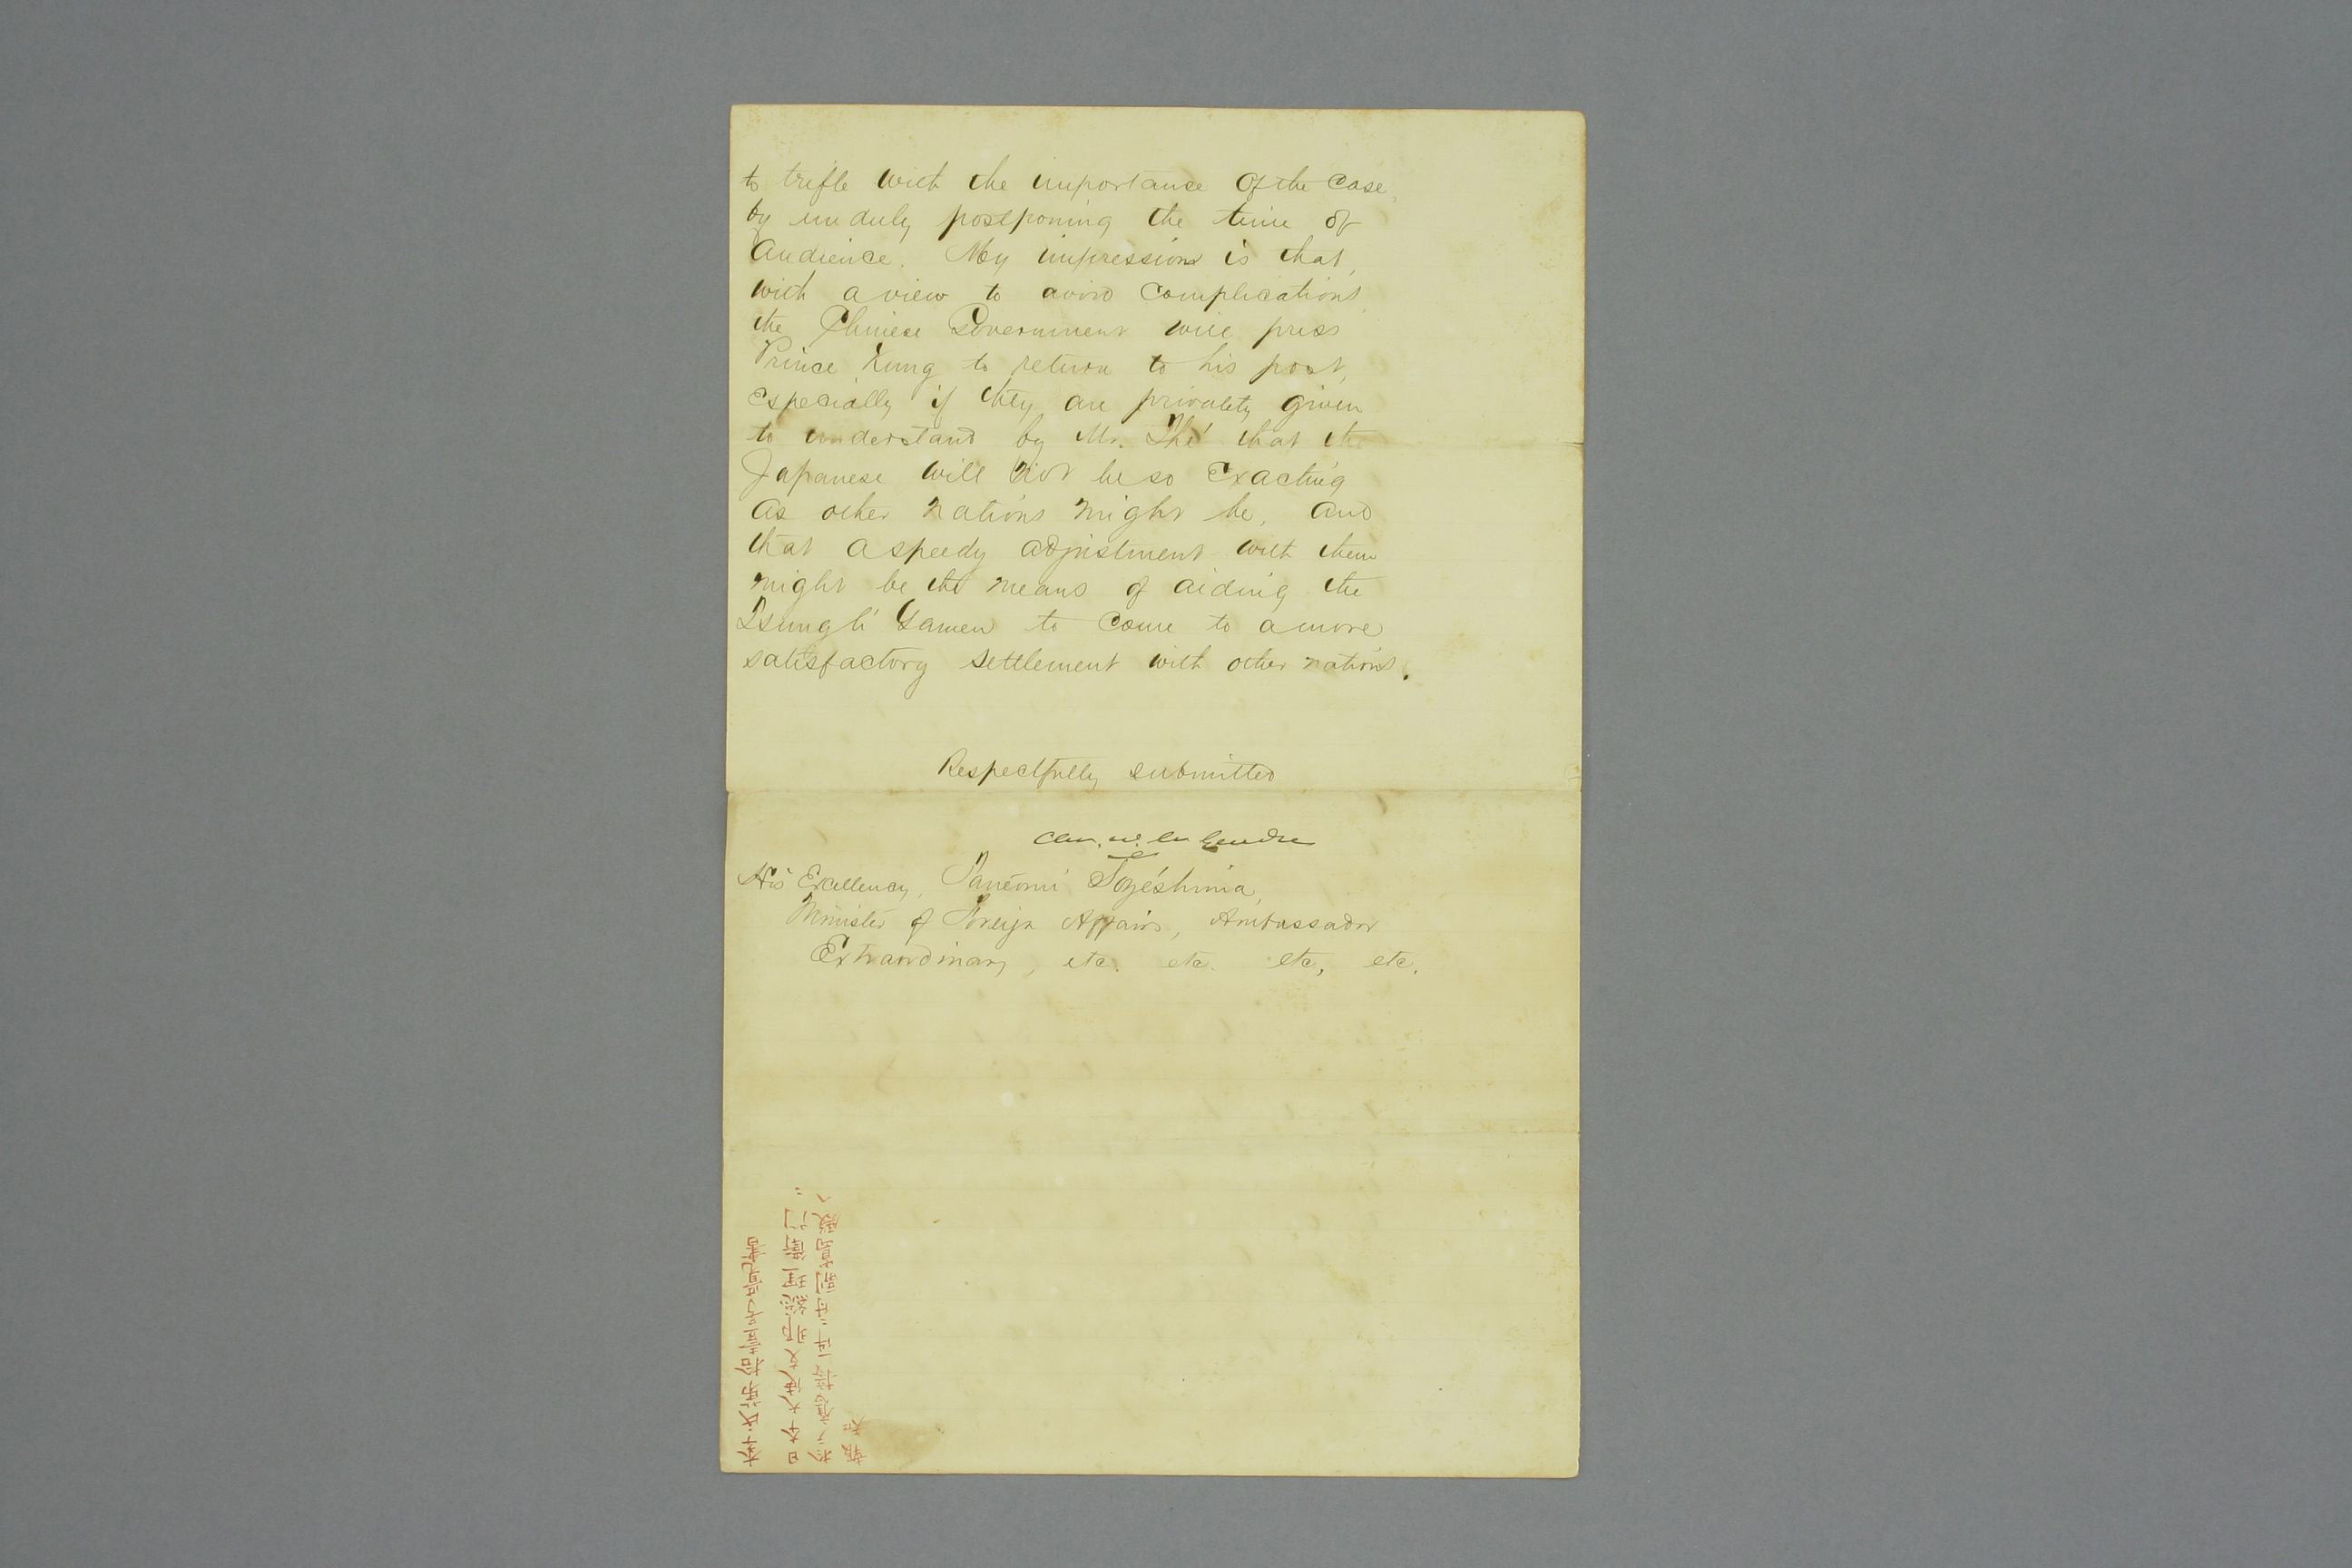 to trifle with the importance of the case,
by unduly postponing the time of
Audience. My impression is that,
with a view to avoid complications,
the Chinese Government will press
Prince Kung to return to his post,
especially if they are privately given
to understand by Mr. Thé that the
Japanese will not be so exacting
as other nations might be, and
that a speedy adjustment with them
might be the means of aiding the
Tsungli Yamen to come to a more
satisfactory settlement with other nations.
Respectfully submitted
His Excellency, Tanéomi Soyéshima,
Minister of Foreign Affairs, Ambassador
Extraordinary, etc. etc. etc, etc.
日本大使
報知